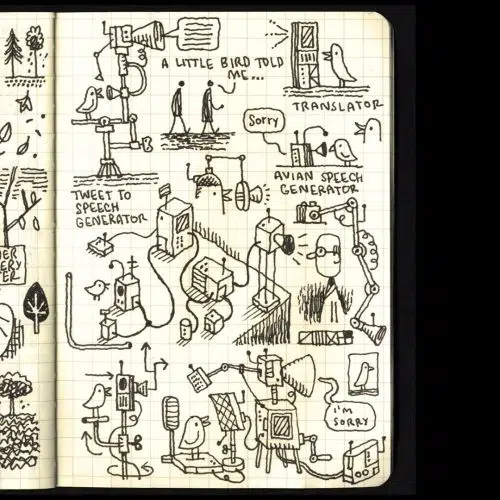 A LITTLE BIRD TOLD
ME...
TRANSLATOR
Sorry
AVIAN SPEECH
GENERATOR
TWEET TO
SPEECH
GENERATOR
I'M
SORRY